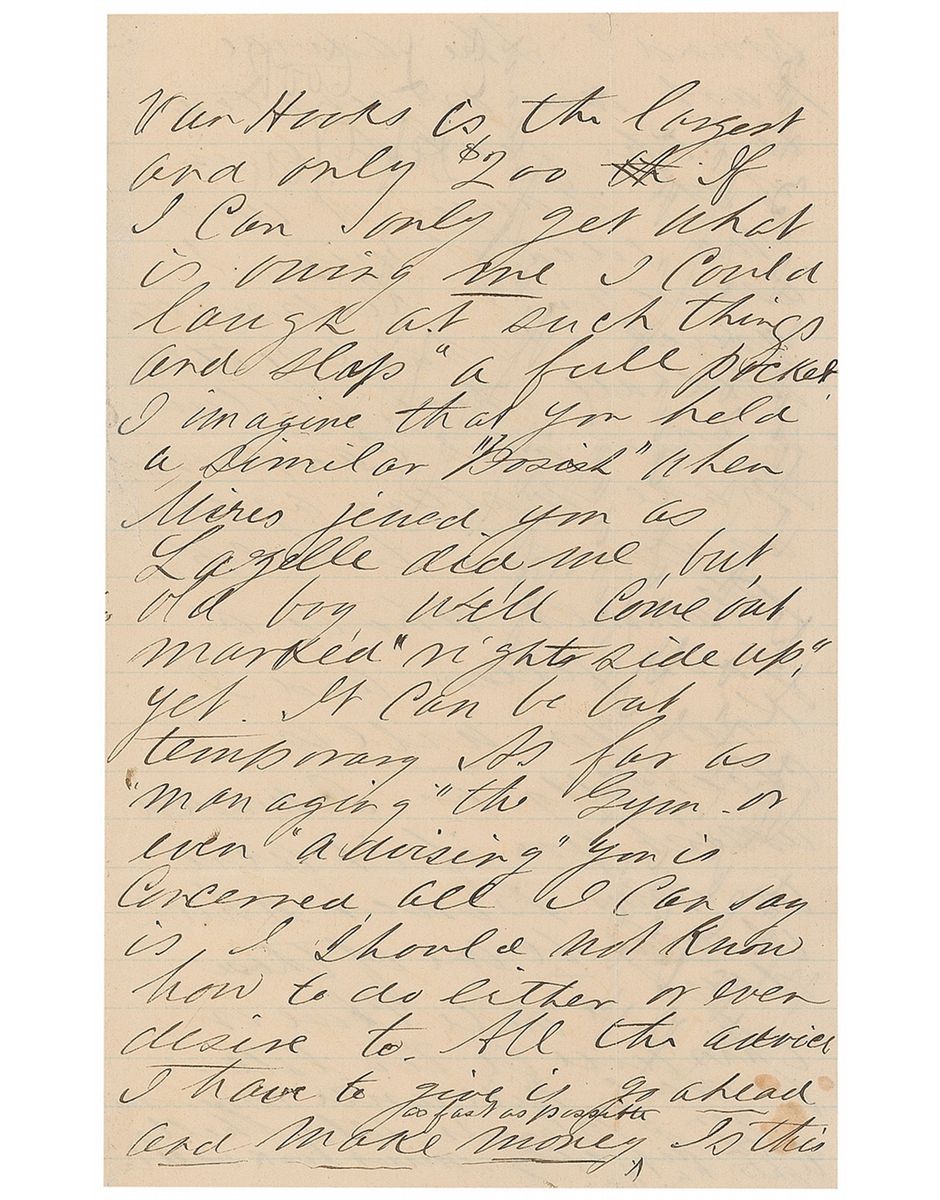 Van Hooks is the largest
and only $200 th If
I Can only get what
is owing me I Could
laugh at such things
and slap "a full pocket"
I imagine that you held
a similar "Posish" when
Mires jined you as
Lazelle did me, but,
old boy we'll Come out
marked "right side up"
yet. It Can be but
temporary As far as
"managing" the Gym - or
even "advising" you is
Concerned, all I Can say
is, I Should not Know
how to do either or even
desire to. All the advice
I have to give is go ahead
as fast as possible
and make money, Is this